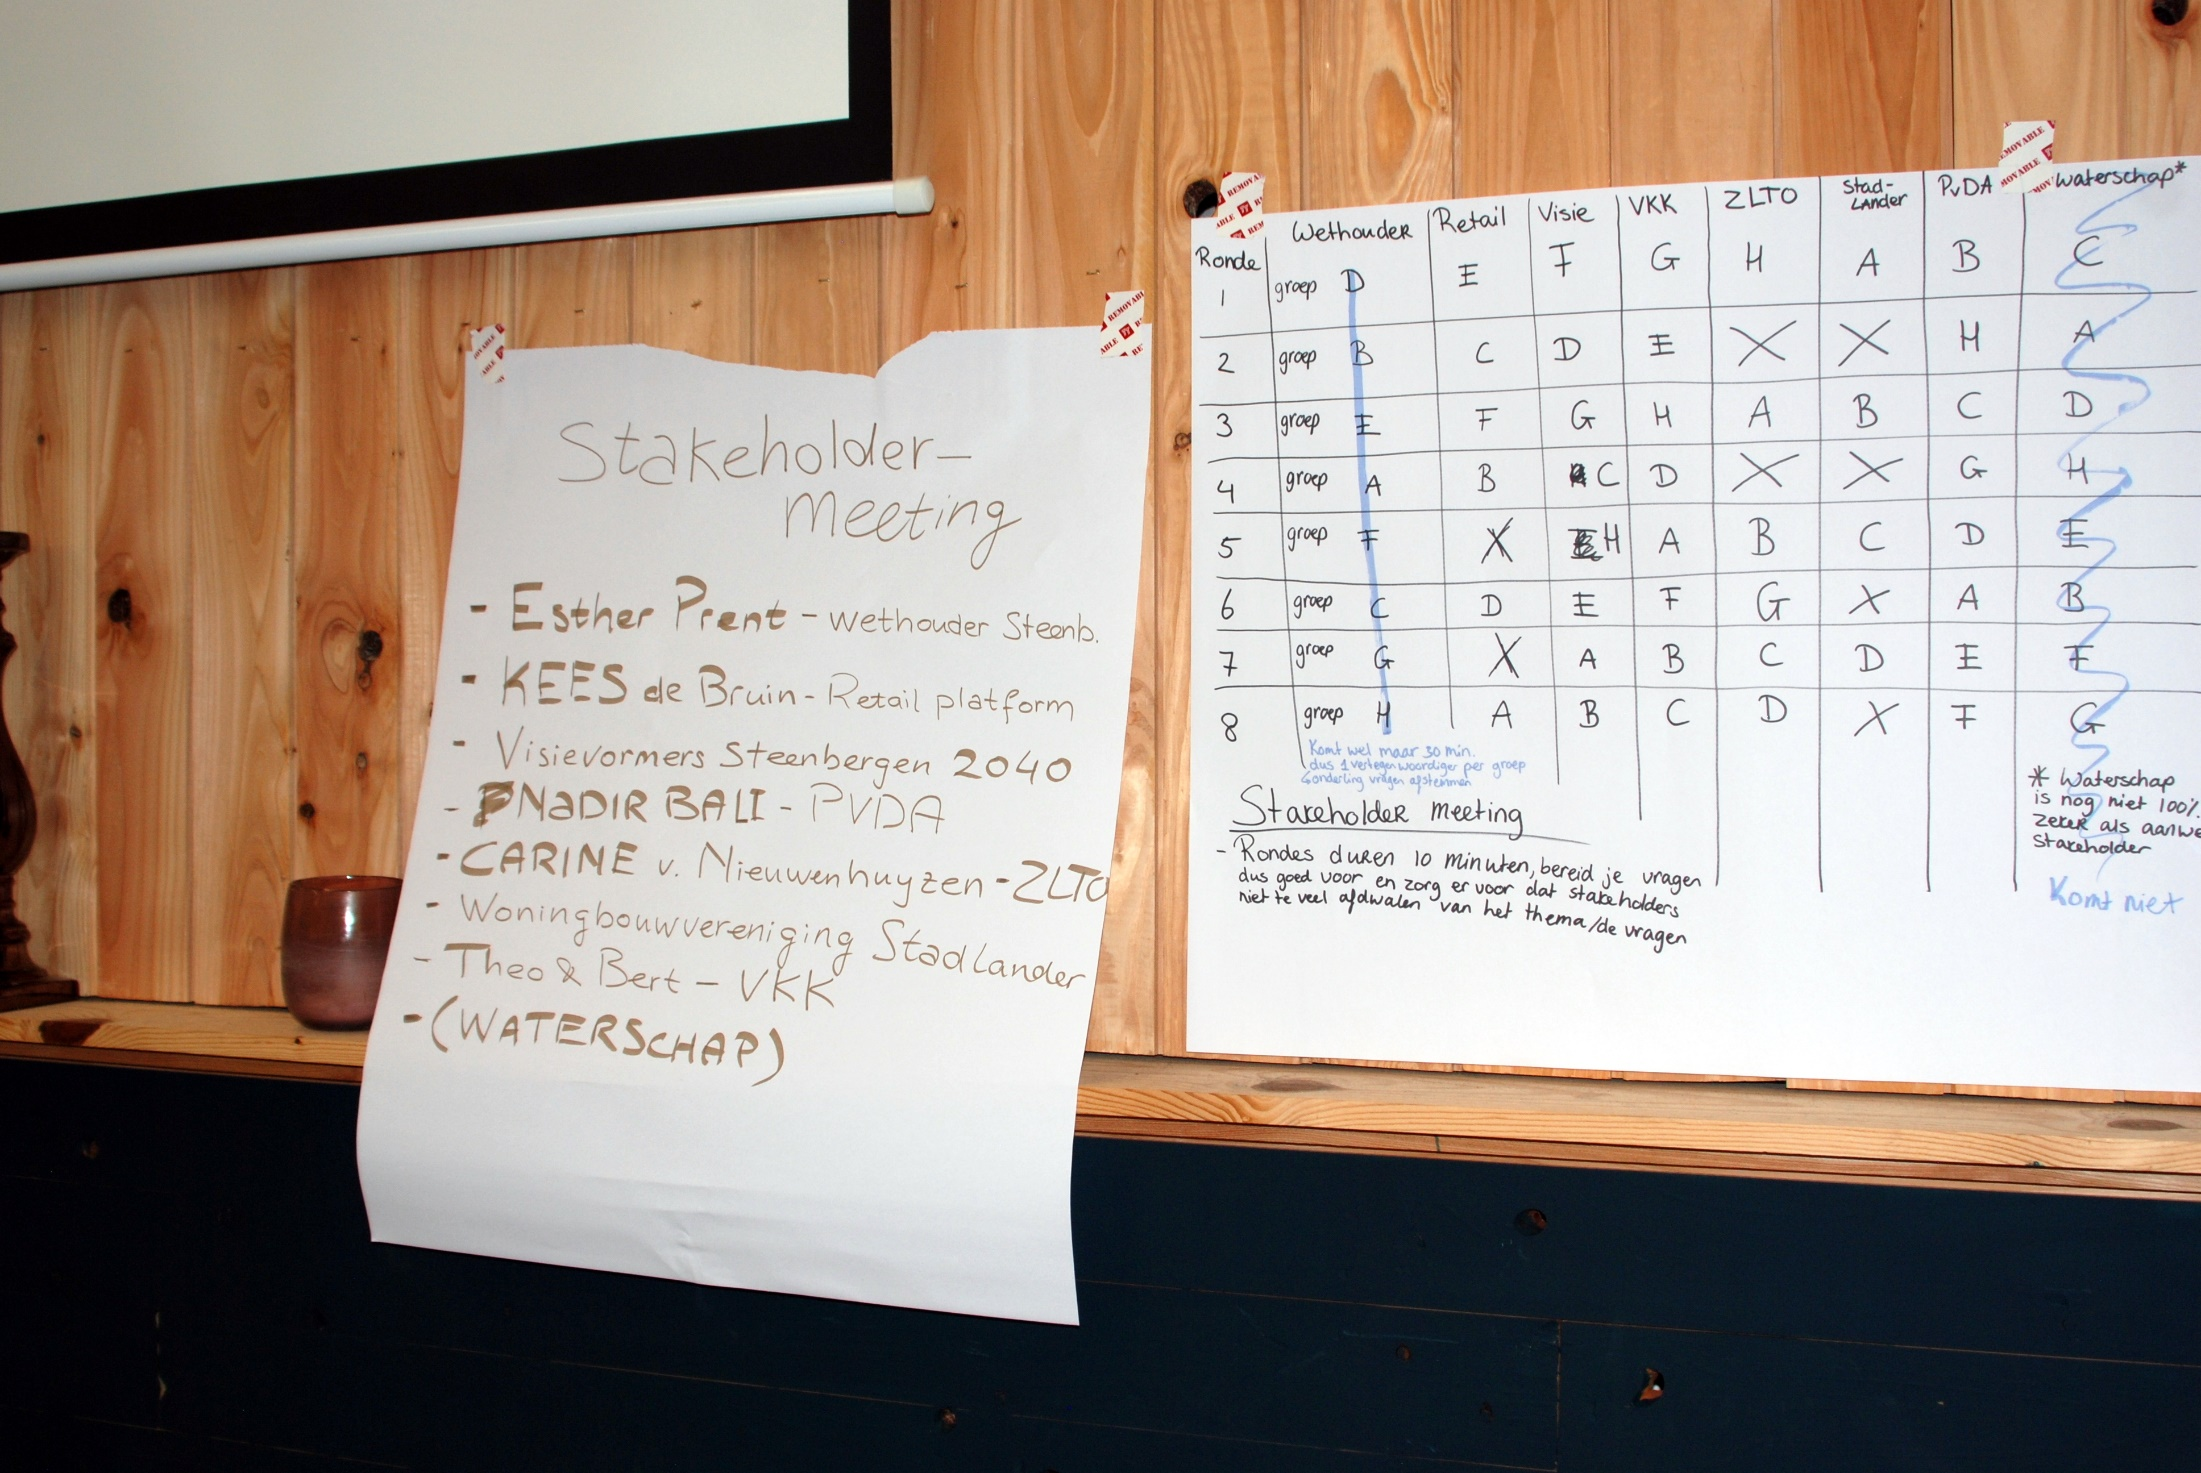 Stakeholder-
meeting
- Esther Prent - wethouder Steenb.
- KEES de Bruin - Retail platform
- Visievormers Steenbergen 2040
- NADIR BALI - PVDA
- CARINE v. Nieuwenhuyzen - ZLTO
- Woningbouwvereniging Stadlander
- Theo & Bert - VKK
- (WATERSCHAP)
Ronde Wethouder Retail Visie VKK ZLTO Stad-Lander PvDA Waterschap*
1 groep D E F G H A B C
2 groep B C D E X X H A
3 groep E F G H A B C D
4 groep A B C D X X G H
5 groep F X H A B C D E
6 groep C D E F G X A B
7 groep G X A B C D E F
8 groep H A B C D X F G
Komt wel maar 30 min.
dus 1 vertegenwoordiger per groep
onderling vragen afstemmen
Stakeholder meeting
- Rondes duren 10 minuten, bereid je vragen
dus goed voor en zorg er voor dat stakeholders
niet te veel afdwalen van het thema/de vragen
* Waterschap
is nog niet 100%
zeker als aanwe
stakeholder
Komt niet
REMOVABLE